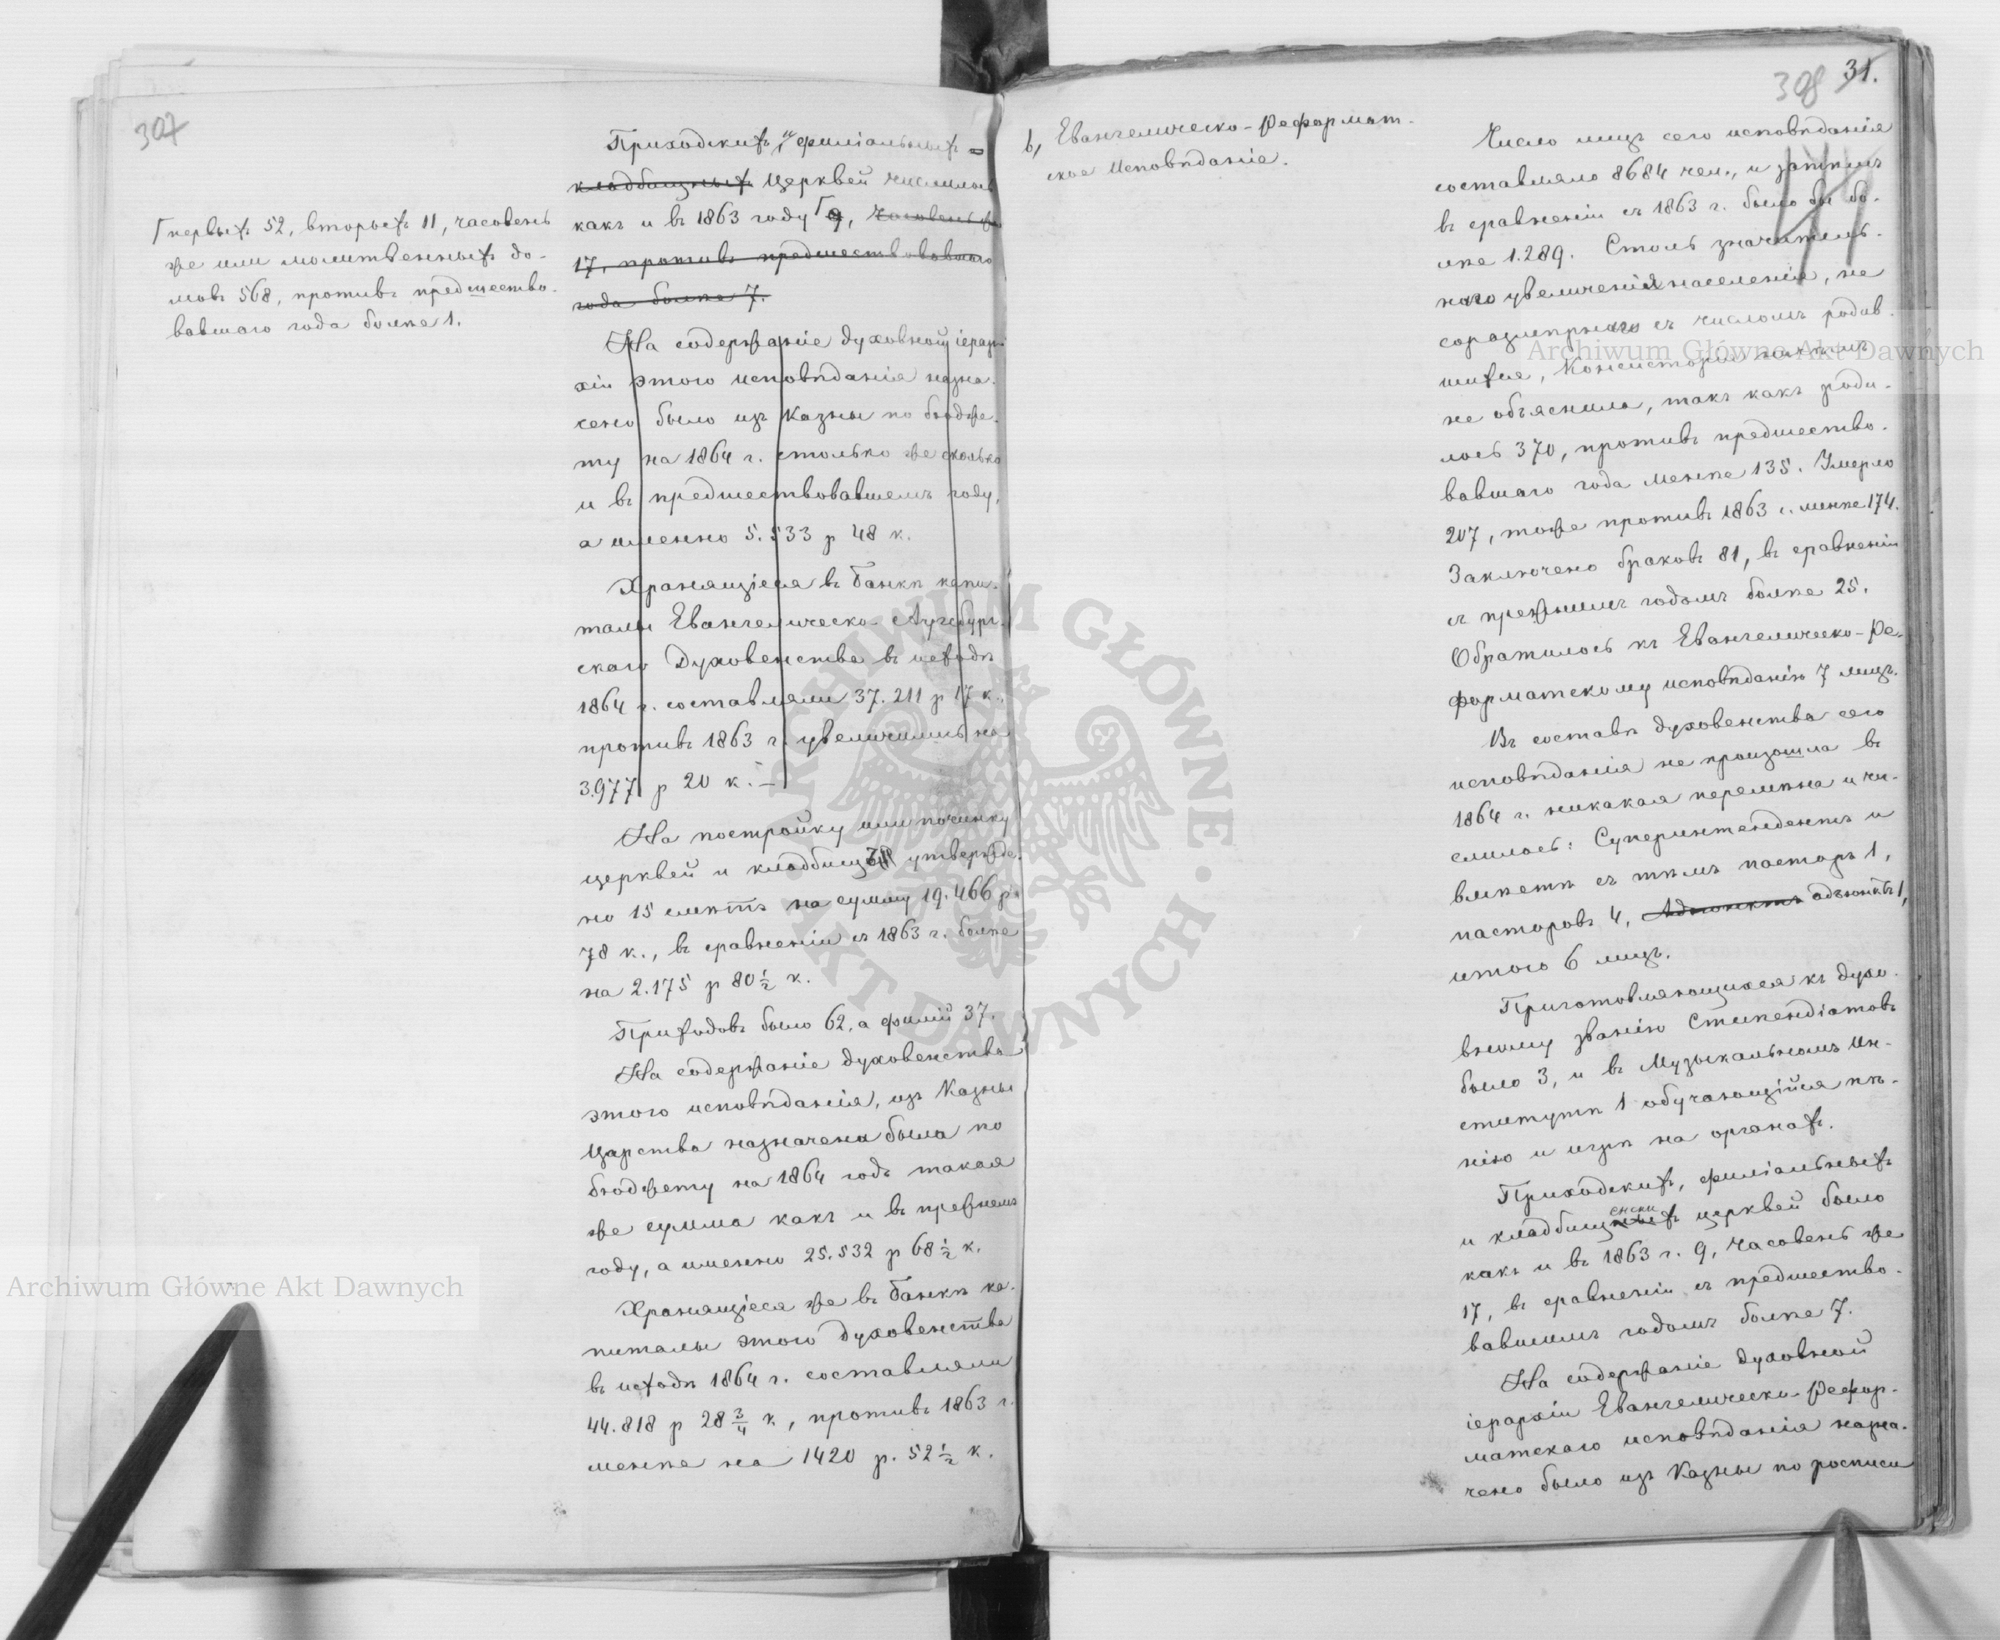 307
Приходскихъ, и филіальныхъ
кладбищныхъ церквей числилось
какъ и въ 1863 году 9, часовень же
17, противъ предшествовавшаго
года болѣе 7.
первыхъ 52, вторыхъ 11, часовень
же или молитвенныхъ до-
мовъ 568, противъ предшество-
вавшаго года болѣе 1.
На содержаніе духовной іерар-
хіи этого исповѣданія назна-
чено было изъ Казны по бюдже-
ту на 1864 г. столько же сколько
и въ предшествовавшемъ году,
а именно 5.533 р 48 к.
Хранящіеся въ Банкѣ капи-
талы Евангелическо-Аугсбург-
скаго Духовенства въ исходѣ
1864 г. составляли 37.211 р 17 к.,
противъ 1863 г. увеличились на
3.977 р 20 к. —
На постройку или починку
церквей и кладбищъ утвержде-
но 15 смѣтъ на сумму 19.466 р.
78 к., въ сравненіи съ 1863 г. болѣе
на 2.175 р 80 ½ к.
Приходовъ было 62, а филій 37.
На содержаніе духовенства
этого исповѣданія, изъ Казны
Царства назначена была по
бюджету на 1864 годъ такая
же сумма какъ и въ прежнемъ
году, а именно 25.532 р 68 ½ к.
Хранящіеся же въ Банкѣ ка-
питалы этого Духовенства
въ исходѣ 1864 г. составляли
44.818 р 28 ¾ к, противъ 1863 г.
менѣе на 1420 р. 52 ½ к.
308 31.
b, Евангелическо-Реформат-
ское Исповѣданіе.
Число лицъ сего исповѣданія
составляло 8684 чел., и затѣмъ
въ сравненіи съ 1863 г. было бы бо-
лѣе 1.289. Столь значитель-
наго увеличенія населенія, не
соразмѣрнаго съ числомъ родив-
шихся, Консисторія ничѣмъ
не объяснила, такъ какъ роди-
лось 370, противъ предшество-
вавшаго года менѣе 135. Умерло
207, тоже противъ 1863 г. менѣе 174.
Заключено браковъ 81, въ сравненіи
съ прежнимъ годомъ болѣе 25.
Обратилось къ Евангелическо-Ре-
форматскому исповѣданію 7 лицъ.
Въ составѣ духовенства сего
исповѣданія не произошла въ
1864 г. никакая перемѣна и чи-
слилось: Суперинтендентъ и
вмѣстѣ съ тѣмъ пасторъ 1,
пасторовъ 4, Адъюнктъ адъюнктъ 1,
итого 6 лицъ.
Приготовляющихся къ духо-
вному званію Стипендіатовъ
было 3, и въ Музыкальномъ Ин-
ститутѣ 1 обучающійся пѣ-
нію и игрѣ на органахъ.
Приходскихъ, филіальныхъ
и кладбищенскихъ церквей было
какъ и въ 1863 г. 9, Часовень же
17, въ сравненіи съ предшество-
вавшимъ годомъ болѣе 7.
На содержаніе Духовной
іерархіи Евангелическо-Рефор-
матскаго исповѣданія назна-
чено было изъ Казны по росписи
Archiwum Główne Akt Dawnych
Archiwum Główne Akt Dawnych
ARCHIWUM GŁÓWNE · AKT DAWNYCH ·